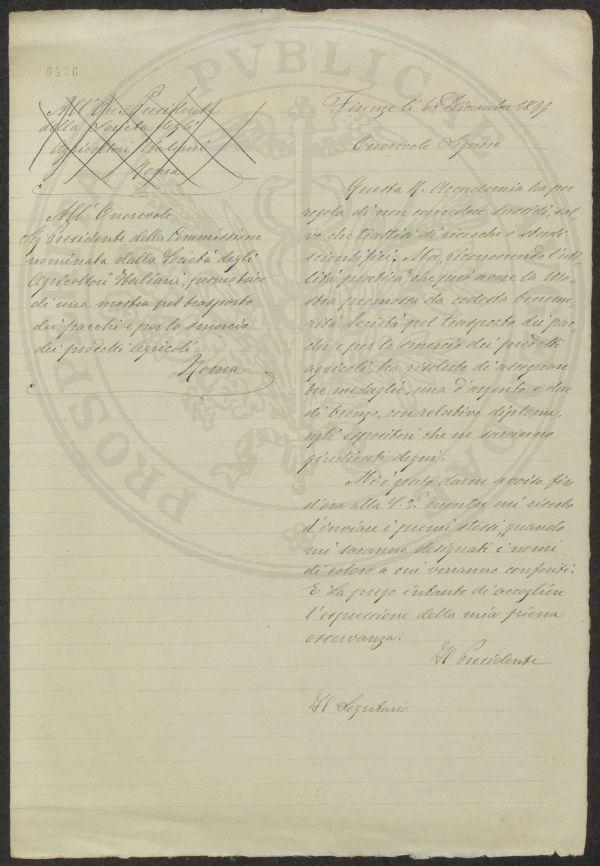 6406
All'On. Presidente
della Società degli
Agricoltori Italiani
Roma
All' Onorevole
Sig Presidente della Commissione
nominata dalla Società degli
Agricoltori Italiani, promotrice
di una mostra pel trasporto
dei pacchi e per lo smercio
dei prodotti Agricoli
Roma
Firenze li 6 Dicembre 1899
Onorevole Signore
Questa R. Accademia ha per
regola di non concedere sussidi, sal-
vo che trattisi di ricerche e studi
scientifici. Ma, riconoscendo l'uti-
lità pratica che può avere la Mo-
stra promossa da codesta beneme-
rita Società pel trasporto dei pac-
chi e per lo smercio dei prodotti
agricoli, ha risoluto di assegnare
tre medaglie, una d'argento e due
di bronzo, con relativo diploma,
agli espositori che ne saranno
giudicati degni.
Mi è grato darne avviso fin
d'ora alla S. V. mentre mi riserbo
d'inviare i premi stessi quando
mi saranno designati i nomi
di coloro a cui verranno conferiti.
E La prego intanto di accogliere
l'espressione della mia piena
osservanza.
Il Presidente
Il Segretario
PROSP PVBLICAE